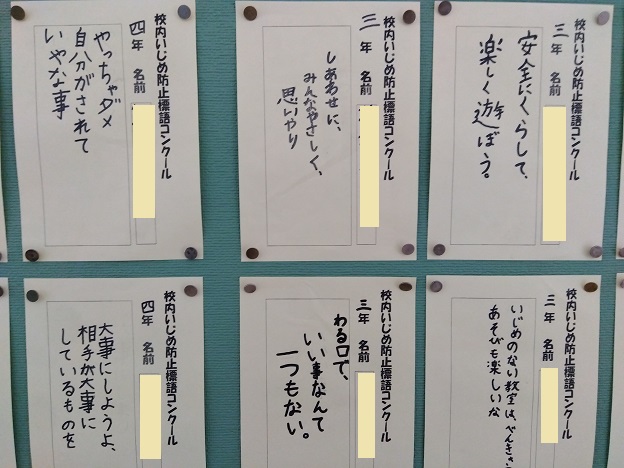 校内いじめ防止標語コンクール
三年 名前
安全にくらして、
楽しく遊ぼう。
校内いじめ防止標語コンクール
三年 名前
しあわせに、
みんなやさしく、
思いやり
校内いじめ防止標語コンクール
四年 名前
やっちゃダメ
自分がされて
いやな事
校内いじめ防止標語コンクール
三年 名前
いじめのない教室は、べんきょう
あそびも楽しいな
校内いじめ防止標語コンクール
三年 名前
わる口で、
いい事なんて
一つもない。
校内いじめ防止標語コンクール
四年 名前
大事にしようよ、
相手が大事に
しているものを